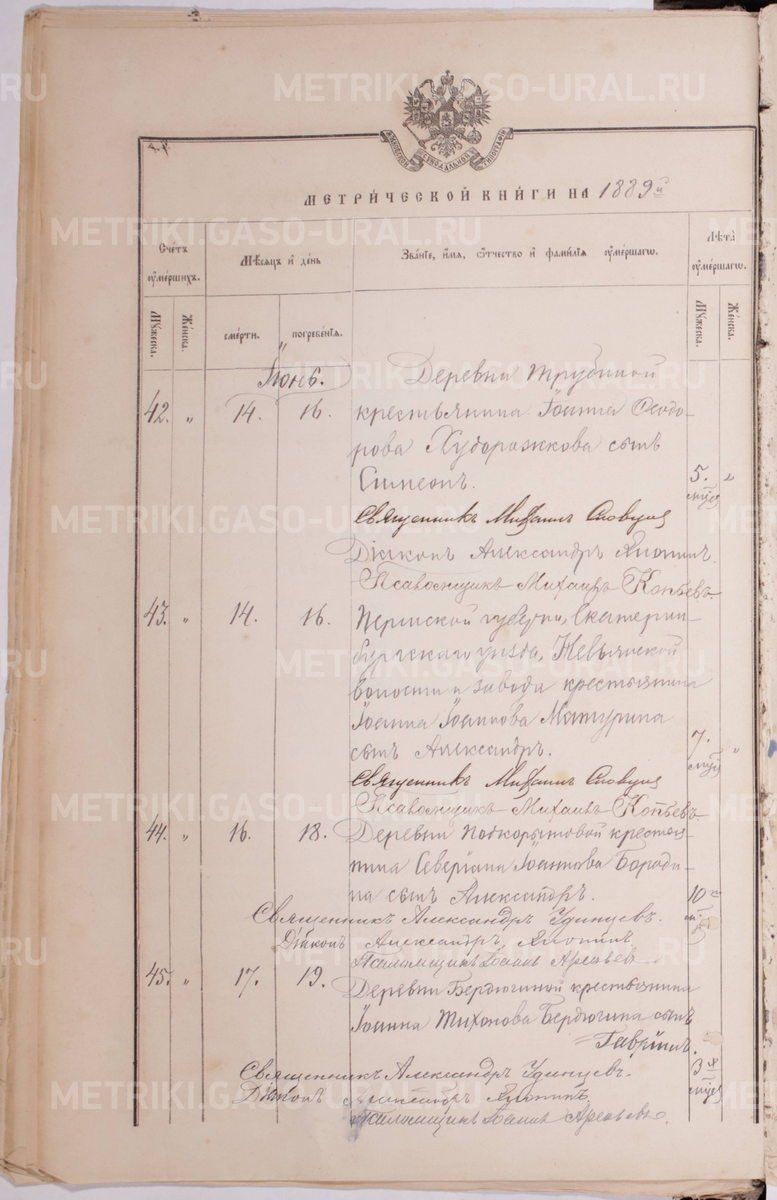 МЕТРИ́ЧЕСКОЙ КНИ́ГИ НА 1889й
Счéтъ ᲂумéршихъ.
Мѣ́сяцъ и день
Звáнїе, и́мя, ѻ́тчество и фами́лїя ᲂумéршагѡ.
Лѣ́та ᲂумéршагѡ.
Мꙋ́жеска.
Жéнска.
смéрти.
погребéнїя.
Мꙋ́жеска.
Жéнска.
Іюнь.
Деревни Трубиной
42. " 14. 16. крестьянина Іоанна Ѳеодо-
рова Худорожкова сынъ
Симеонъ. 5. "
Священникъ Михаилъ Словцов
Діаконъ Александръ
Псаломщикъ Михаилъ Копьевъ
43. " 14. 16. Пермской губерніи, Екатерин-
бургскаго уѣзда, Невьянской
волости и завода крестьянина
Іоанна Іоаннова Матурина 7.
сынъ Александръ. "
Священникъ Михаилъ Словцов
Псаломщикъ Михаилъ Копьевъ
44. " 16. 18. Деревни Подкорытовой крестья-
нина Северіана Іоаннова Бороди-
на сынъ Александръ. 10
Священникъ Александръ Удинцевъ.
Діаконъ Александръ
Псаломщикъ Іоаннъ
45. " 17. 19. Деревни Бердюгиной крестьянина
Іоанна Тихонова Бердюгина сынъ
Гавріилъ. 3
Священникъ Александръ Удинцевъ.
Діаконъ Александръ
Псаломщикъ Іоаннъ
METRIKI.GASO-URAL.RU